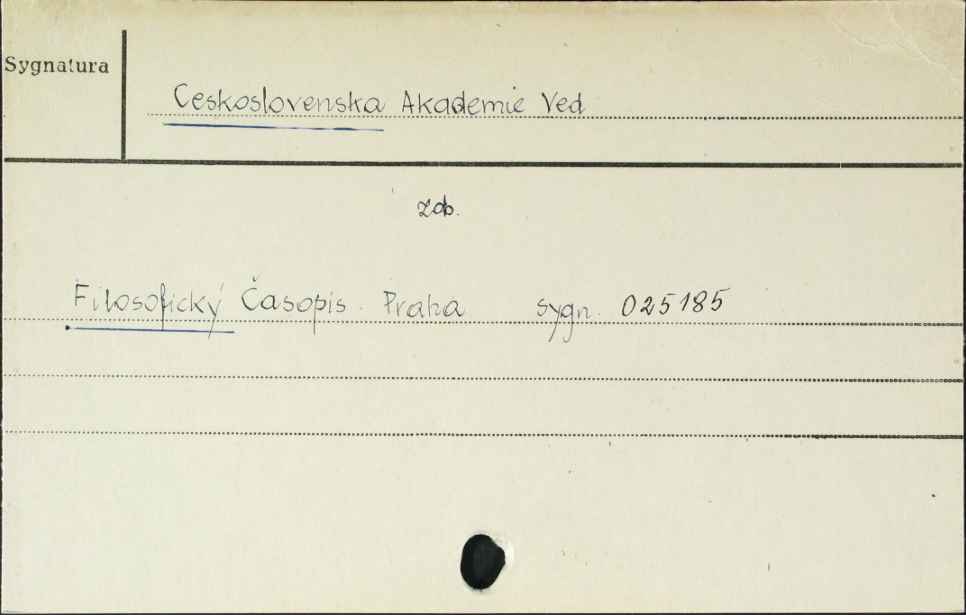 Sygnatura
Ceskoslovenska Akademie Ved
zob.
Filosofický Časopis. Praha sygn. 025185